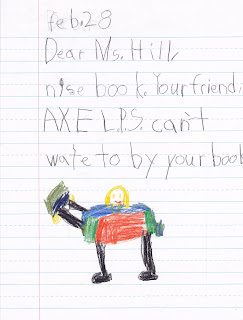 feb.28
Dear Ms. Hill,
nise book. Your friend
AXE L.P.S. can't
wate to by your book